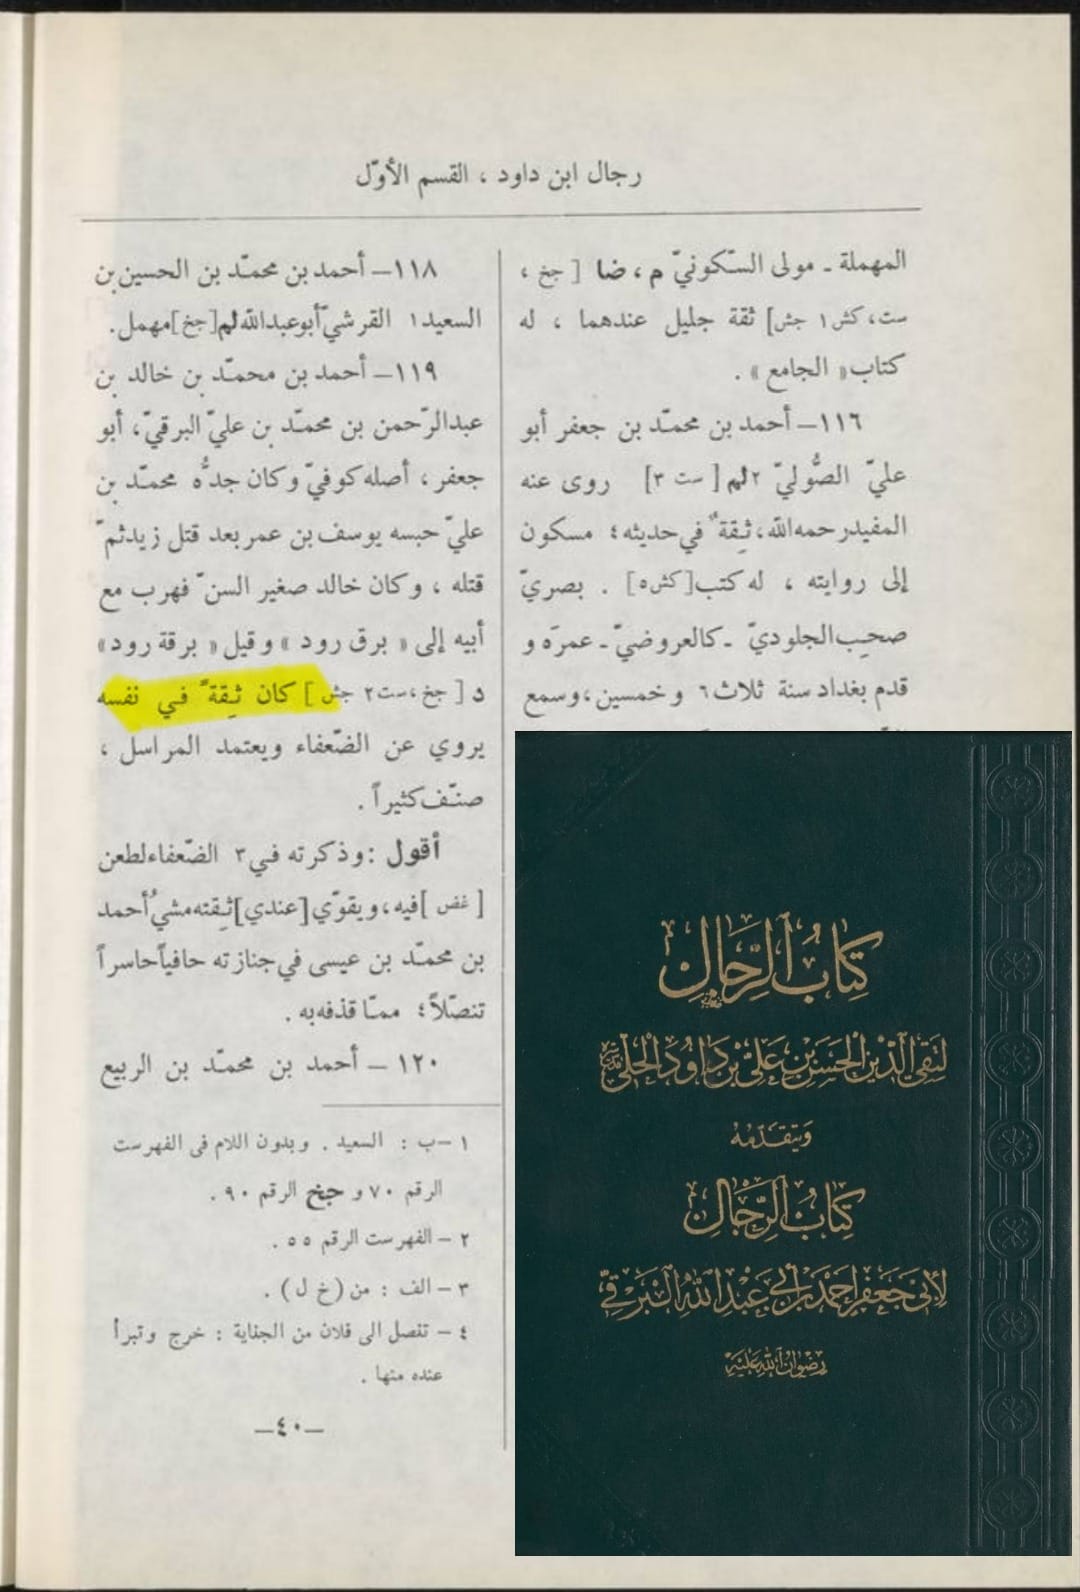 رجال ابن داود ، القسم الأوّل
المهملة ـ مولى السّكونيّ م ، ضا [ جخ ،
ست ، كش ١ جش] ثقة جليل عندهما ، له
كتاب « الجامع » .
١١٦ـ أحمد بن محمّد بن جعفر أبو
عليّ الصُّوليّ ٢ لم [ ست ٣] روى عنه
المفيد رحمه الله ، ثِقةٌ في حديثه ؛ مسكون
إلى روايته ، له كتب [كش ٥] . بصريّ
صحِب الجلوديّ ـ كالعروضيّ ـ عمرَه و
قدم بغداد سنة ثلاث ٦ و خمسين ، وسمع
١١٨ـ أحمد بن محمّد بن الحسين بن
السعيد ١ القرشيّ أبو عبدالله لم [جخ] مهمل .
١١٩ـ أحمد بن محمّد بن خالد بن
عبدالرّحمن بن محمّد بن عليّ البرقيّ ، أبو
جعفر ، أصله كوفيّ وكان جدُّه محمّد بن
عليّ حبسه يوسف بن عمر بعد قتل زيد ثمّ
قتله ، وكان خالد صغير السنّ فهرب مع
أبيه إلى « برق رود » وقيل « برقة رود »
د [ جخ ، ست ٢ جش ] كان ثِقةً في نفسه
يروي عن الضّعفاء ويعتمد المراسل ،
صنّف كثيراً .
أقول : وذكرته في ٣ الضّعفاء لطعن
[ غض ] فيه ، ويقوّي [عندي] ثِقته مشيُ أحمد
بن محمّد بن عيسى في جنازته حافياً حاسراً
تنصّلاً ٤ ممّا قذفه به .
١٢٠ ـ أحمد بن محمّد بن الربيع
١ ـ ب : السعيد . وبدون اللام فى الفهرست
الرقم ٧٠ و جخ الرقم ٩٠ .
٢ ـ الفهرست الرقم ٥٥ .
٣ ـ الف : من (خ ل) .
٤ ـ تنصل الى فلان من الجناية : خرج وتبرأ
عنده منها .
ـ٤٠ـ
كتاب الرجال
لتقي الدين الحسن بن علي بن داود الحلي
ويتقدمه
كتاب الرجال
لأبي جعفر احمد بن أبي عبدالله البرقي
رضوان الله عليه